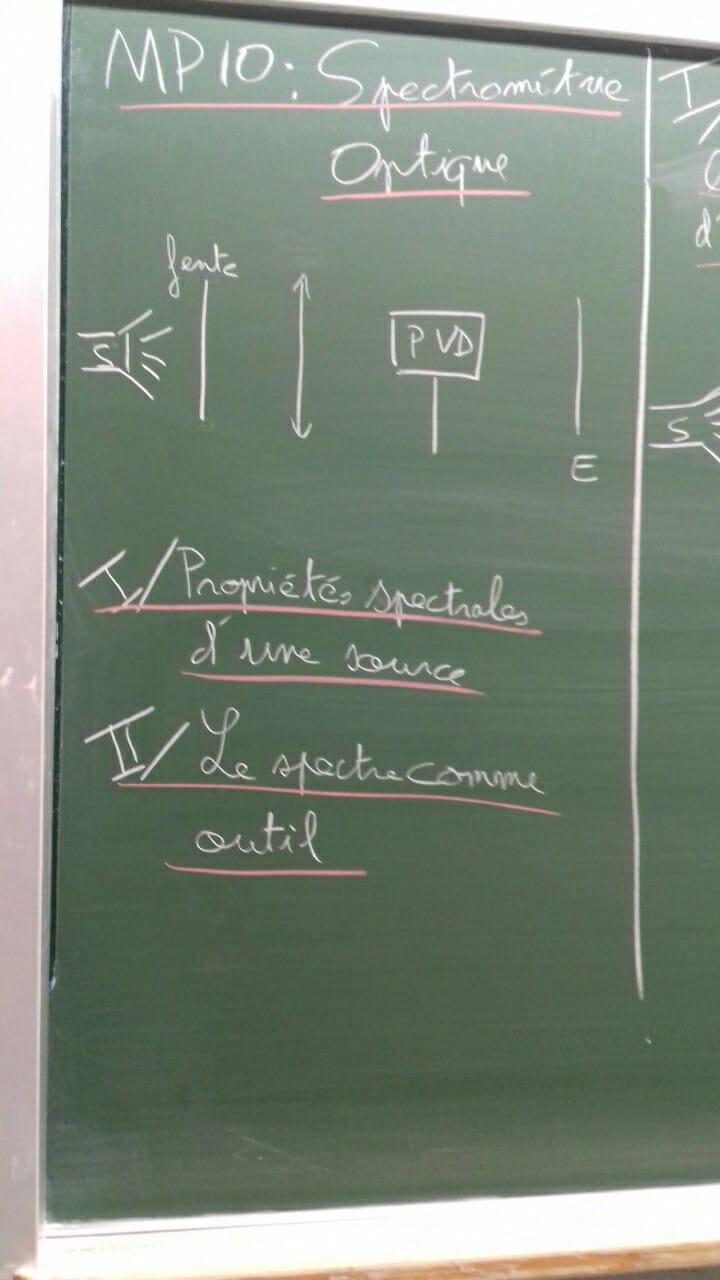 MP10: Spectrométrie
Optique
fente
S
PVD
E
I/ Propriétés spectrales
d'une source
II/ Le spectre comme
outil
I/
d'
S